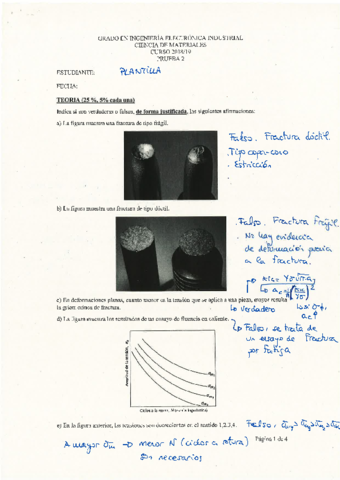 GRADO EN INGENIERÍA ELECTRÓNICA INDUSTRIAL
CIENCIA DE MATERIALES
CURSO 2018/19
PRUEBA 2
ESTUDIANTE: PLANTILLA
FECHA:
TEORIA (25 %, 5% cada una)
Indica si son verdaderas o falsas, de forma justificada, las siguientes afirmaciones:
a) La figura muestra una fractura de tipo frágil.
Falso. Fractura dúctil.
Tipo copa-cono
Estricción
b) La figura muestra una fractura de tipo dúctil.
Falso. Fractura Frágil
No hay evidencia
de deformación previa
a la fractura.
c) En deformaciones planas, cuanto menor es la tensión que se aplica a una pieza, mayor resulta
la grieta crítica de fractura.
Verdadero
d) La figura muestra los resultados de un ensayo de fluencia en caliente.
Falso, se trata de
un ensayo de fractura
por fatiga
e) En la figura anterior, las tensiones son decrecientes en el sentido 1,2,3,4.
Falso,
A mayor σm → menor N (ciclos a rotura)
son necesarios
Página 1 de 4